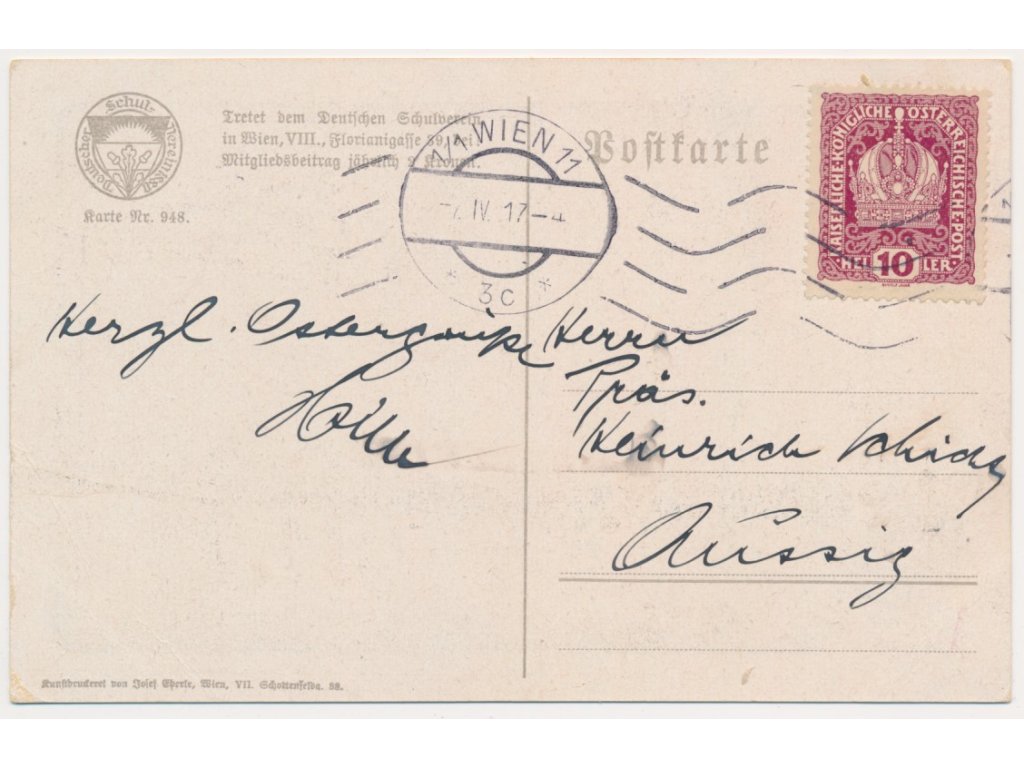 Deutscher Schulverein 1880
Karte Nr. 948.
Tretet dem Deutschen Schulverein
in Wien, VIII., Florianigasse 39, bei
Mitgliedsbeitrag jährlich 2 Kronen.
Postkarte
WIEN 11
IV. 17-4
* 3c *
KAISERLICHE·KÖNIGLICHE·ÖSTERREICHISCHE·POST
HELLER
10
Herzl. Ostergrüße
Herrn
Präs.
Heinrich Schicht
Aussig
Kunstdruckerei von Josef Eberle, Wien, VII. Schottenfeldg. 38.